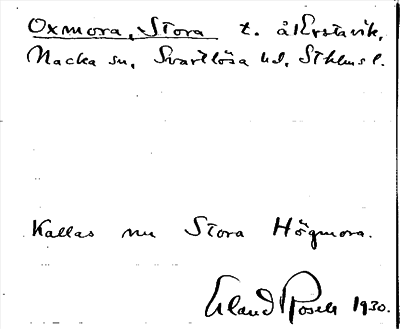 Oxmora, Stora t. å Erstavik,
Nacka sn, Svartlösa hd, Sthlms l.
Kallas nu Stora Högmora.
Erland Rosell 1930.